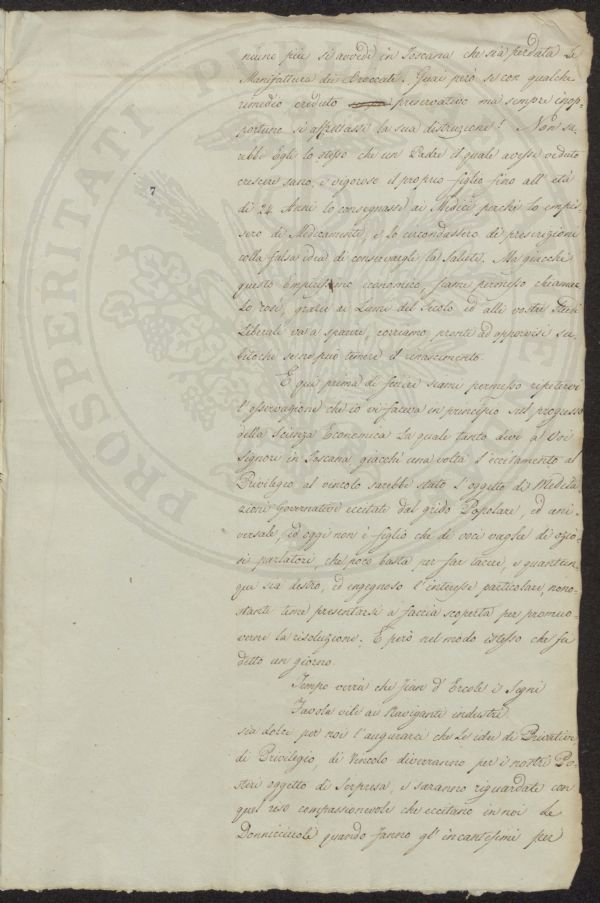 niuno più si avvede in Toscana che sia perduta la
Manifattura dei Broccati. Guai però se con qualche
rimedio creduto preservativo ma sempre inop-
portuno si affrettasse la sua distruzione! Non sa-
rebbe Egli lo stesso che un Padre il quale avesse veduto
crescere sano, e vigoroso il proprio figlio fino all' età
di 24 Anni lo consegnasse ai Medici perchè lo empis-
sero di Medicamenti, e lo circondassero di prescrizioni
colla falsa idea di conservargli la salute. Ma giacchè
7
questo Empirismo economico, siami permesso chiamar
lo così, grazie ai Lumi del Secolo ed alle vostre Idee
Liberali va a sparire, corriamo pronti ad opporvisi su-
bitochè se ne può temere il rinascimento.
E quì prima di finire siami permesso ripetervi
l'osservazione che io vi faceva in principio sul progresso
della Scienza Economica la quale tanto deve a Voi
Signori in Toscana giacchè una volta l'eccitamento al
Privilegio al vincolo sarebbe stato l'oggetto di Medita-
zioni Governative eccitate dal grido Popolare, ed uni-
versale, ed oggi non è figlio che di voci vaghe di ozio-
si parlatori, che poco basta per far tacere, e quantun-
que sia destro, ed ingegnoso l'interesse particolare, nono-
stante teme presentarsi a faccia scoperta per promuo-
verne la risoluzione. E però nel modo istesso che fu
detto un giorno.
Tempo verrà che fian d'Ercole i Segni
Favola vile ai Naviganti industri
sia dolce per noi l'augurarci che le idee di Privative
di Privilegio, di Vincolo diverranno per i nostri Po-
steri oggetto di sorpresa, e saranno riguardate con
quel riso compassionevole che eccitano in noi le
Donnicciuole quando fanno gl' incantesimi per
PROSPERITATI PUBLICAE